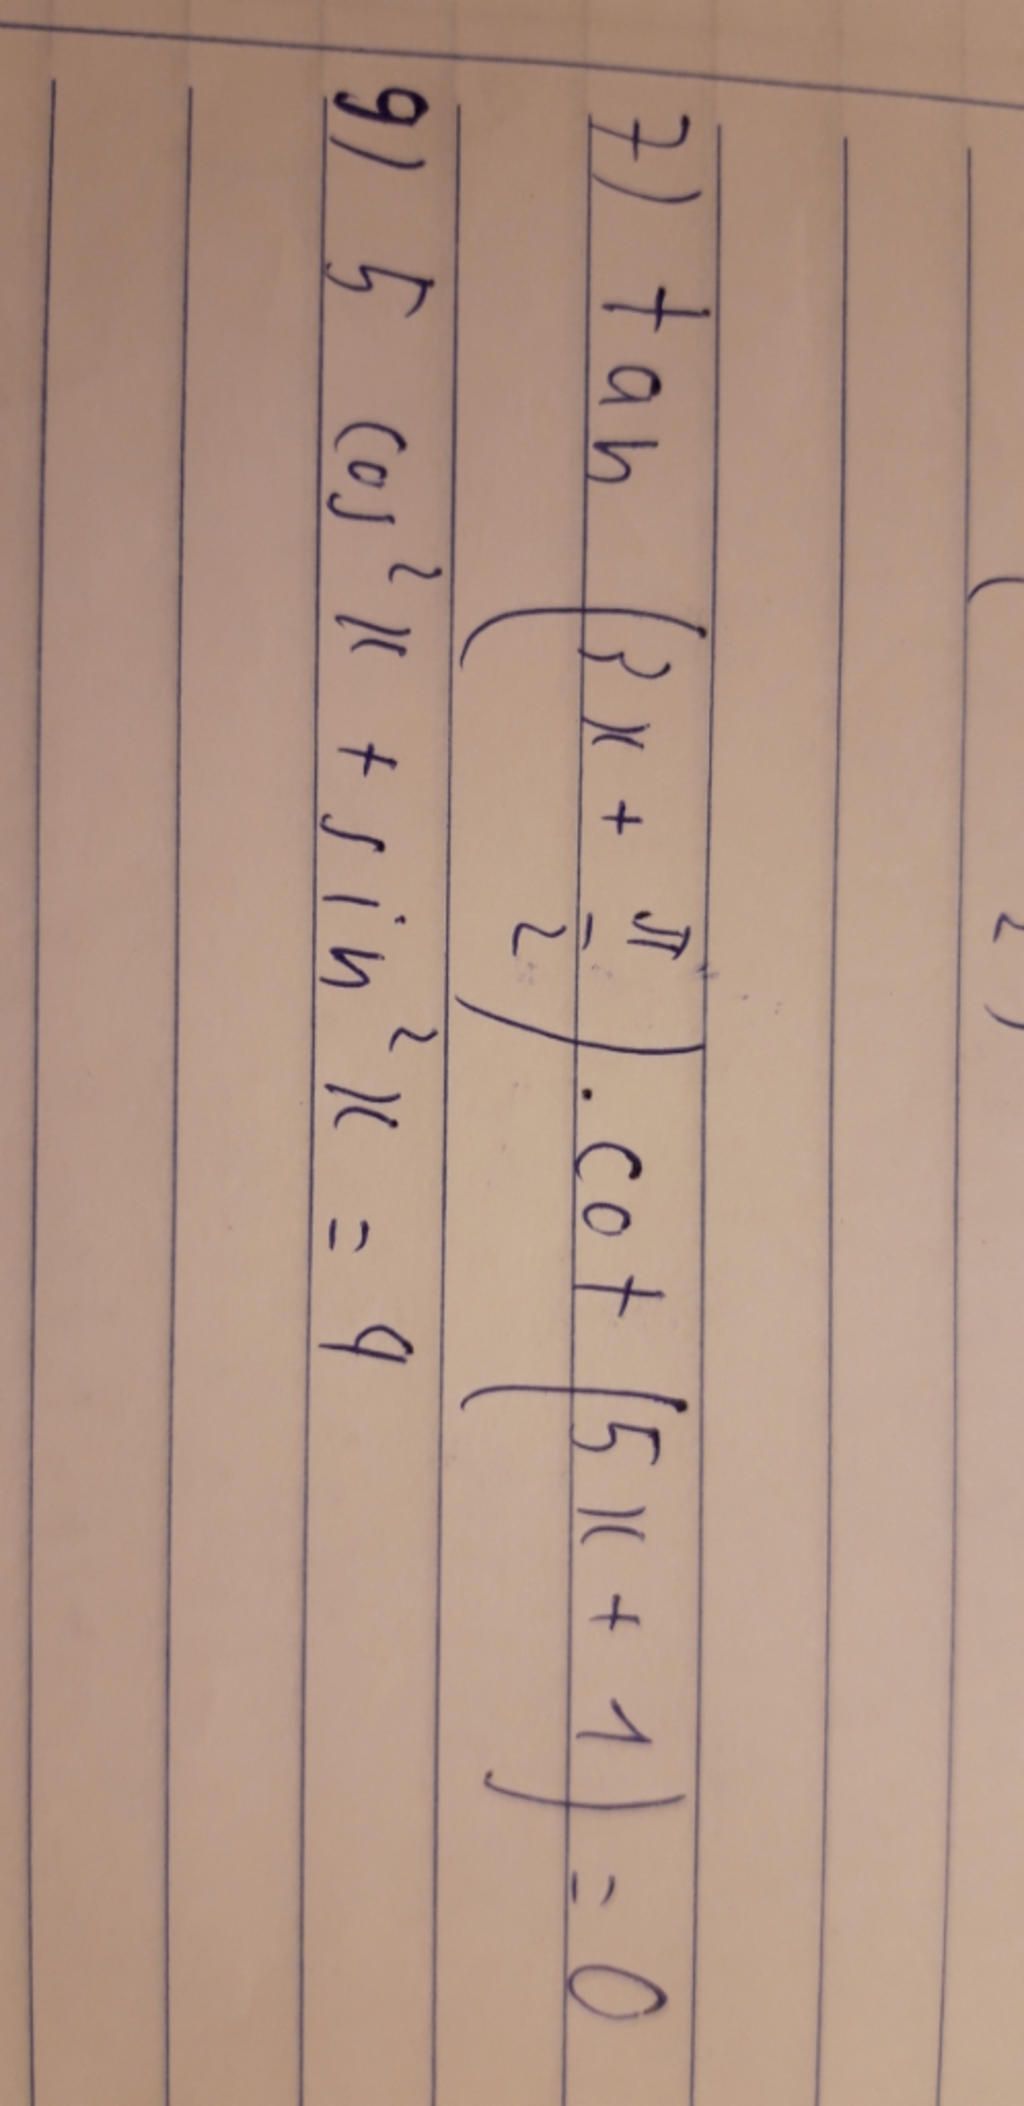 7) tan (3x + π/2) . cot (5x + 1) = 0
9) 5 cos² x + sin² x = 4